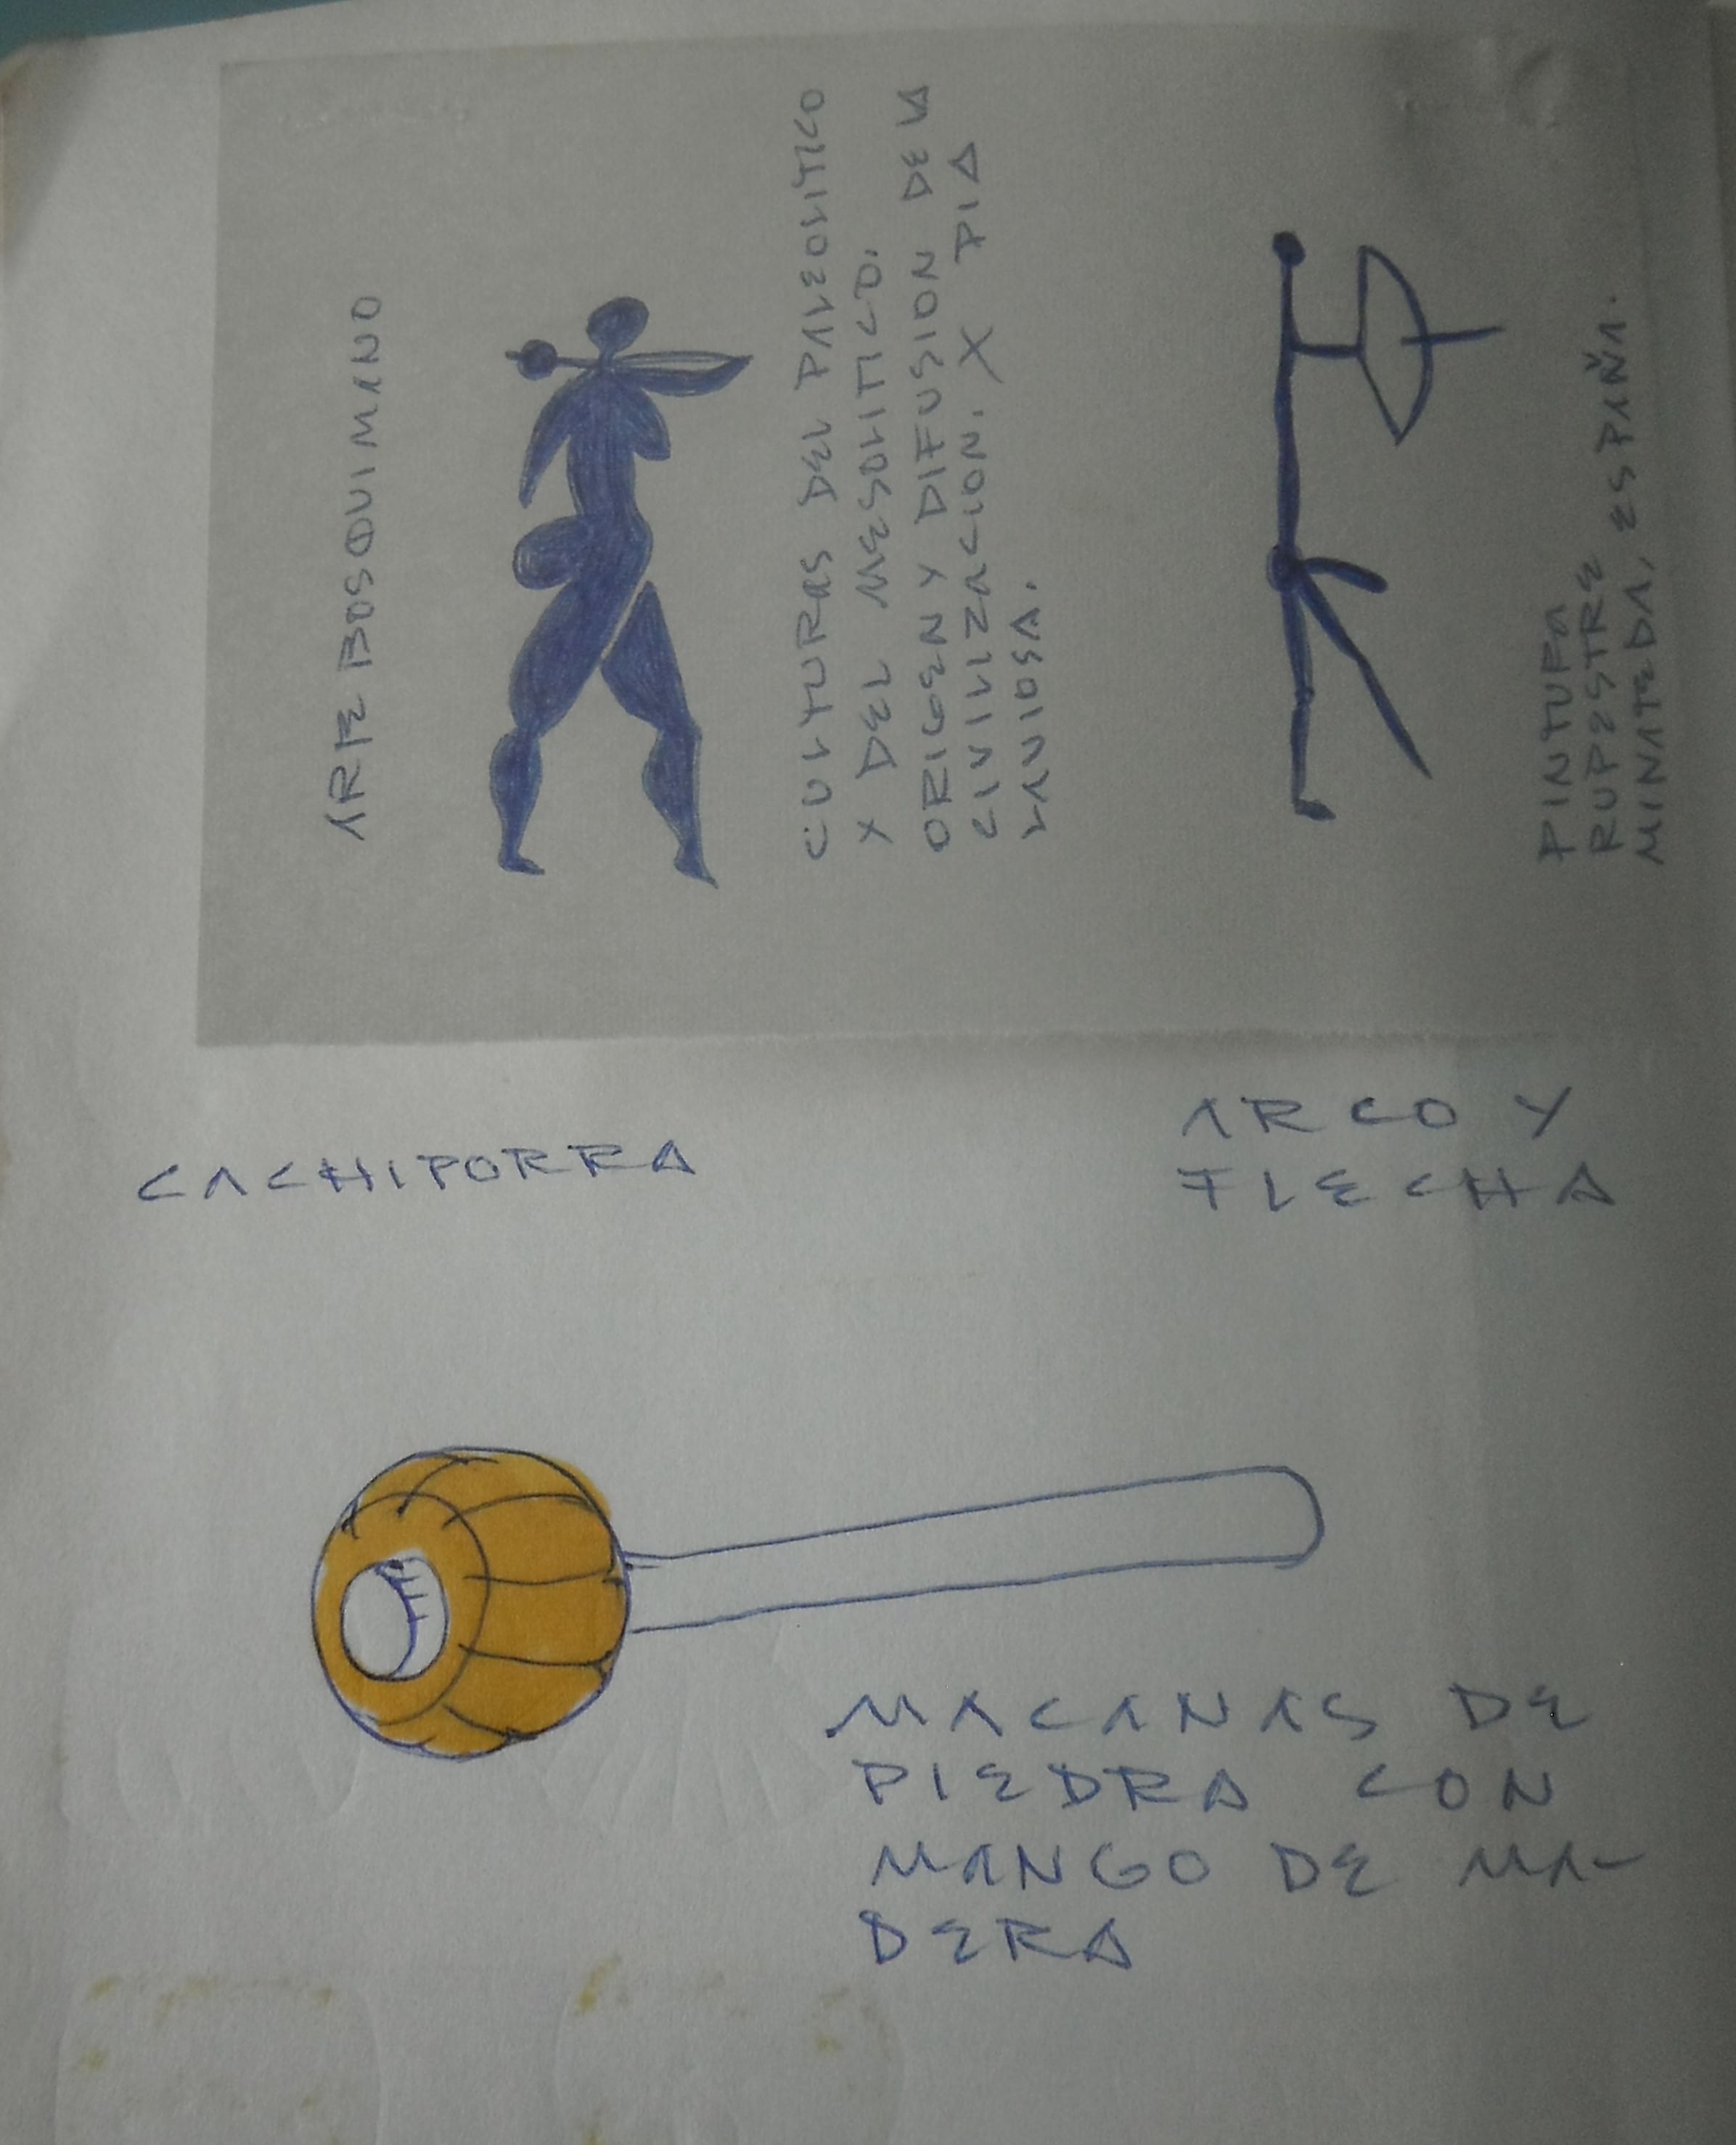 ARTE BOSQUIMANO
CULTURAS DEL PALEOLITICO
X DEL MESOLITICO.
ORIGEN Y DIFUSION DE LA
CIVILIZACION. X PIA
LAVIOSA.
PINTURA
RUPESTRE
MINATEDA, ESPAÑA.
CACHIPORRA
ARCO Y
FLECHA
MACANAS DE
PIEDRA CON
MANGO DE MA-
DERA